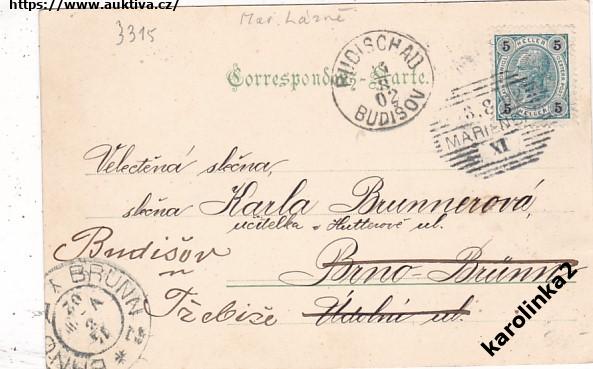 https://www.auktiva.cz/
3315
Mar. Lázně
Correspondenz-Karte.
BUDISCHAU
5
8
02
BUDIŠOV
5 HELLER 5
5 HELLER 5
3. 8
MARIENB
XI
Velectěná slečna,
slečna Karla Brunnerová,
učitelka v Hutterově ul.
Budišov
Brno-Brünn
u
Třebíče
Údolní ul.
BRÜNN
BRNO
karolinka2